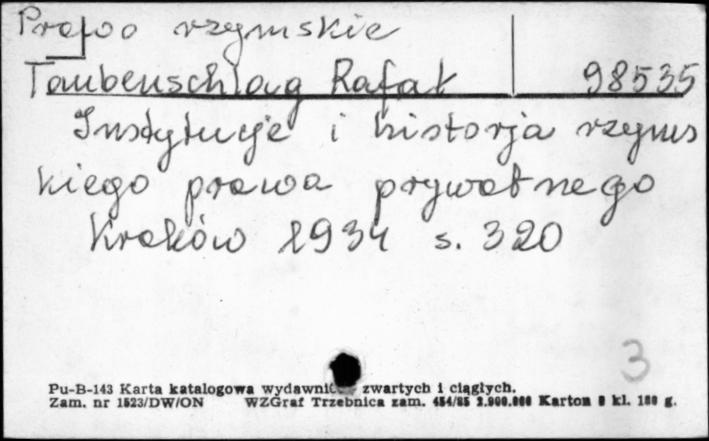 Prawo rzymskie
Taubenschlag Rafał 98535
Instytucje i historja rzyms
kiego prawa prywatnego
Kraków 1934 s. 320
3
Pu-B-143 Karta katalogowa wydawnictw zwartych i ciągłych.
Zam. nr 1523/DW/ON WZGraf Trzebnica zam. 454/85 2.000.000 Karton kl. 180 g.